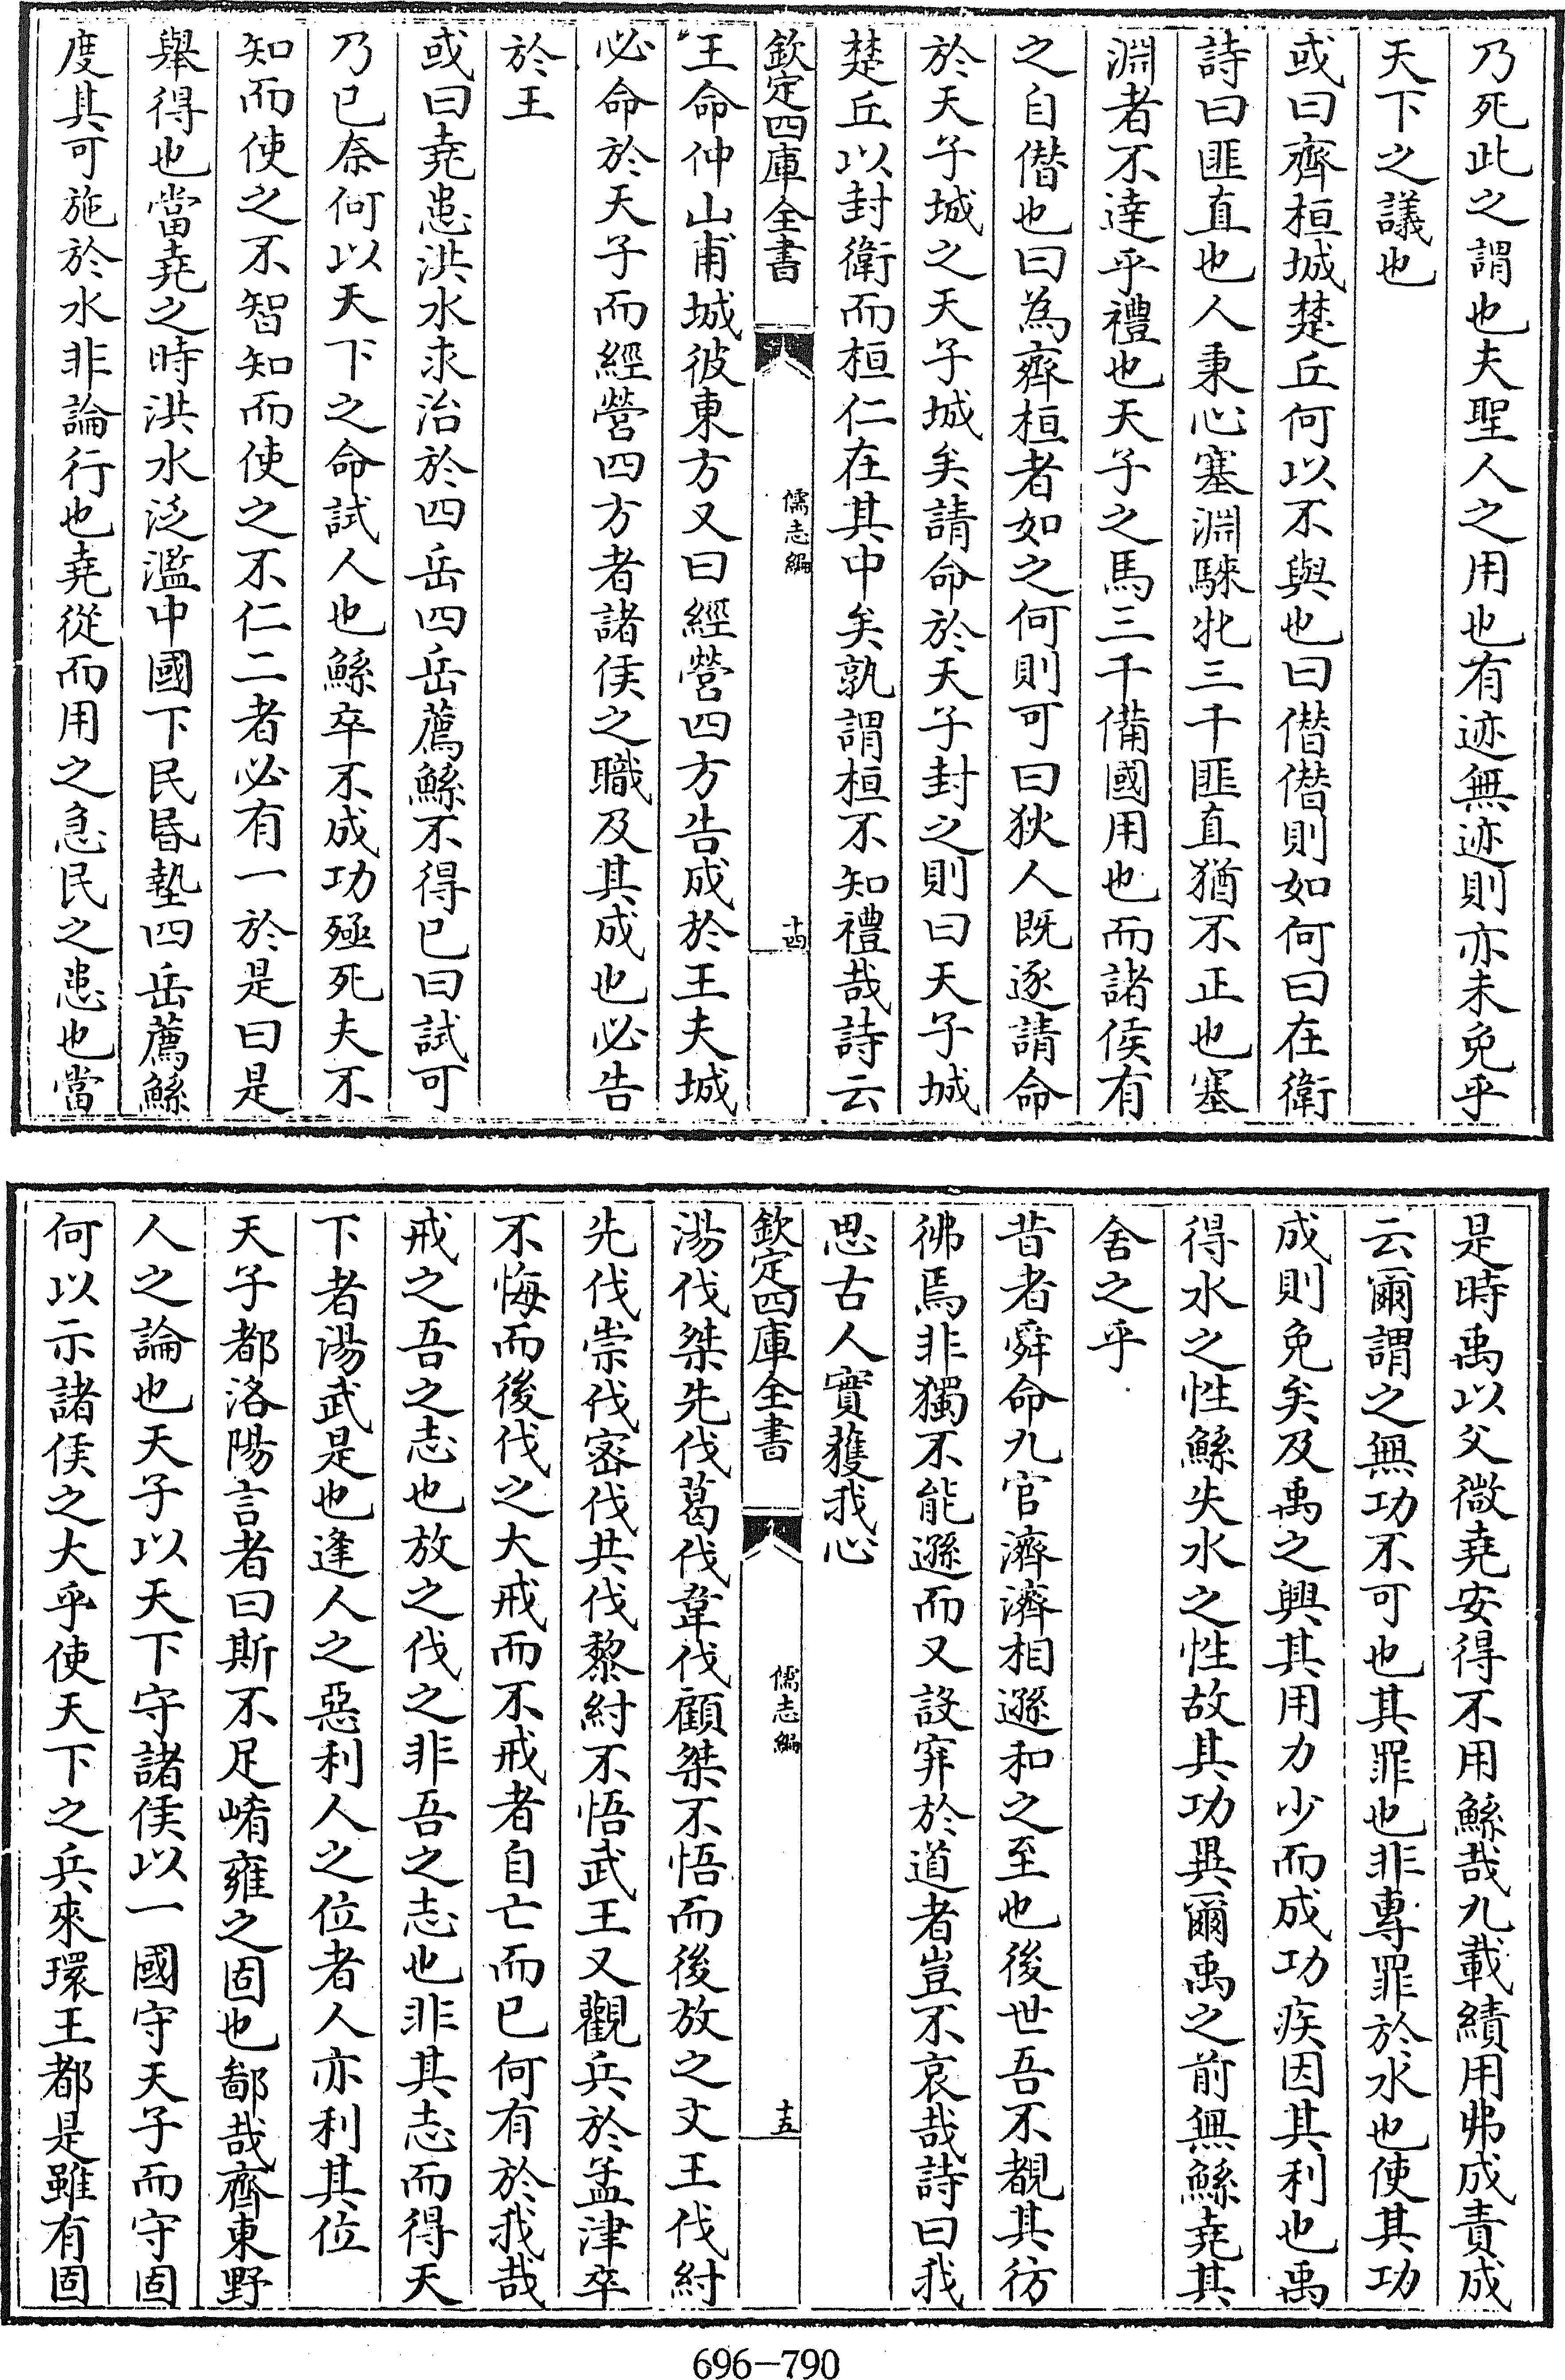 乃死此之謂也夫聖人之用也有迹無迹則亦未免乎
天下之議也
或曰齊桓城楚丘何以不與也曰僭僭則如何曰在衛
詩曰匪直也人秉心塞淵騋牝三千匪直猶不正也塞
淵者不達乎禮也天子之馬三千備國用也而諸侯有
之自僭也曰為齊桓者如之何則可曰狄人既逐請命
於天子城之天子城矣請命於天子封之則曰天子城
楚丘以封衛而桓仁在其中矣孰謂桓不知禮哉詩云
欽定四庫全書
儒志編
十四
王命仲山甫城彼東方又曰經營四方告成於王夫城
必命於天子而經營四方者諸侯之職及其成也必告
於王
或曰堯患洪水求治於四岳四岳薦鯀不得已曰試可
乃已奈何以天下之命試人也鯀卒不成功殛死夫不
知而使之不智知而使之不仁二者必有一於是曰是
舉得也當堯之時洪水泛濫中國下民昏墊四岳薦鯀
度其可施於水非論行也堯從而用之急民之患也當
是時禹以父微堯安得不用鯀哉九載績用弗成責成
云爾謂之無功不可也其罪也非專罪於水也使其功
成則免矣及禹之興其用力少而成功疾因其利也禹
得水之性鯀失水之性故其功異爾禹之前無鯀堯其
舍之乎
昔者舜命九官濟濟相遜和之至也後世吾不覩其彷
彿焉非獨不能遜而又設穽於道者豈不哀哉詩曰我
思古人實獲我心
欽定四庫全書
儒志編
十五
湯伐桀先伐葛伐韋伐顧桀不悟而後放之文王伐紂
先伐崇伐密伐共伐黎紂不悟武王又觀兵於孟津卒
不悔而後伐之大戒而不戒者自亡而已何有於我哉
戒之吾之志也放之伐之非吾之志也非其志而得天
下者湯武是也逢人之惡利人之位者人亦利其位
天子都洛陽言者曰斯不足崤雍之固也鄙哉齊東野
人之論也天子以天下守諸侯以一國守天子而守固
何以示諸侯之大乎使天下之兵來環王都是雖有固
696-790